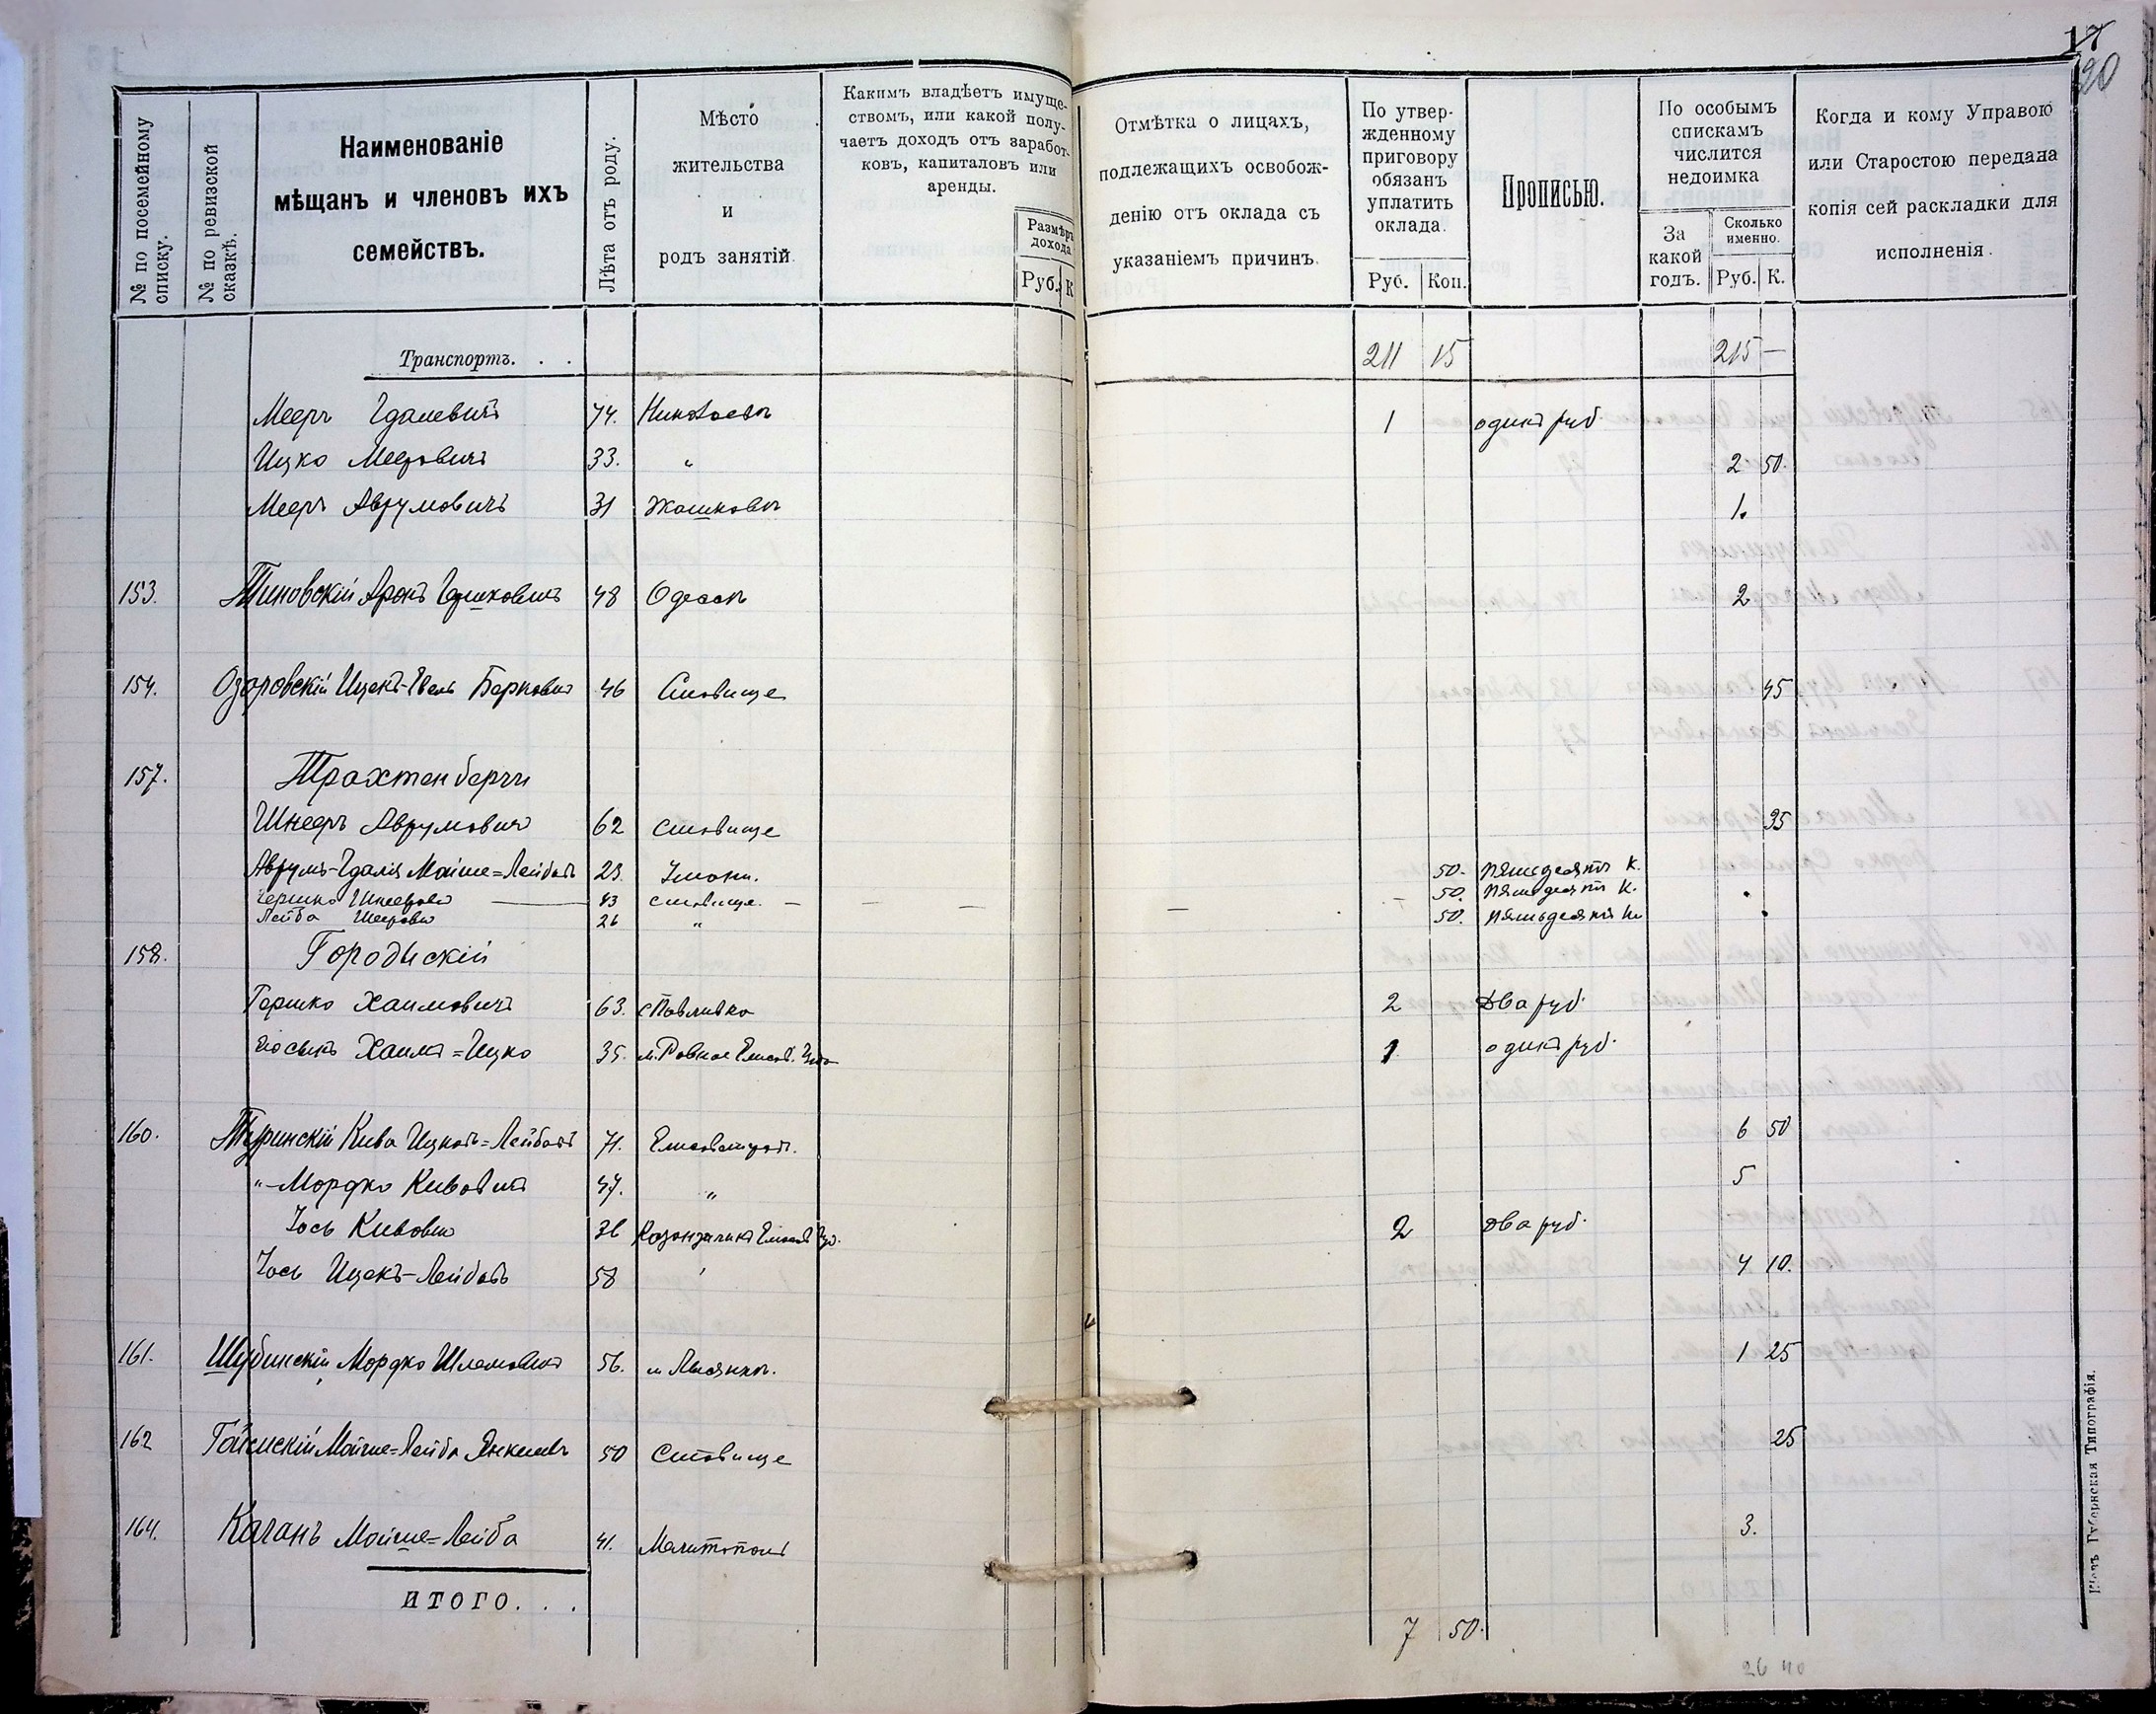 17
20
№ по посемейному списку.
№ по ревизской сказкѣ.
Наименованіе
мѣщанъ и членовъ ихъ
семействъ.
Лѣта отъ роду.
Мѣсто
жительства
и
родъ занятій.
Какимъ владѣетъ имуще-
ствомъ, или какой полу-
чаетъ доходъ отъ заработ-
ковъ, капиталовъ или
аренды.
Размѣръ
дохода
Руб. К
Отмѣтка о лицахъ,
подлежащихъ освобож-
денію отъ оклада съ
указаніемъ причинъ.
По утвер-
жденному
приговору
обязанъ
уплатить
оклада.
Руб. Коп.
Прописью.
По особымъ
спискамъ
числится
недоимка
За
какой
годъ.
Сколько
именно.
Руб. К.
Когда и кому Управою
или Старостою передана
копія сей раскладки для
исполненія.
Транспортъ. . . 211 15 215 —
Мееръ 74. Николаевъ 1 одинъ руб.
Ицко Мееровичъ 33. " 2 50.
Мееръ Аврумовичъ 31 Жашковъ 1.
153. Тиновскій Аронъ Гершковичъ 48 Одесса 2
154. Озаровскій Ицекъ- Берковичъ 46 Ставище 45
157. Трахтенберги
Шнееръ Аврумовичъ 62 ставище 35
Аврумъ-Гдалія Мойше=Лейбовъ 23. Умань. 50. пятьдесятъ к.
Гершко Шнееровъ 43 ставище. — — — — - 50. пятьдесятъ к.
Лейба 26 " 50. пятьдесятъ к.
158. Городыскій
Гершко Хаимовичъ 63. с Павловка 2 Два руб.
Хаимъ=Ицко 35. м. Ровное Елисав. 1 одинъ руб.
160. Туринскій Кива Ицковъ=Лейбовъ 71. Елисаветград. 6 50
"-Мордко Кивовичъ 47. " 5
Іось Кивовъ 36 Казанзичинъ Елисав. 2 Два руб.
Іось Ицекъ-Лейбовъ 58 " 4 10.
161. Шубинскій Мордко Шлемовичъ 56. м Лысянка. 1 25
162 Гайсискій Мойше=Лейба Янкелевъ 50 Ставище 25
164. Каганъ Мойше=Лейба 41. Мелитополь 3.
ИТОГО. . . 7 50.
26 40
Губернская Типографія.